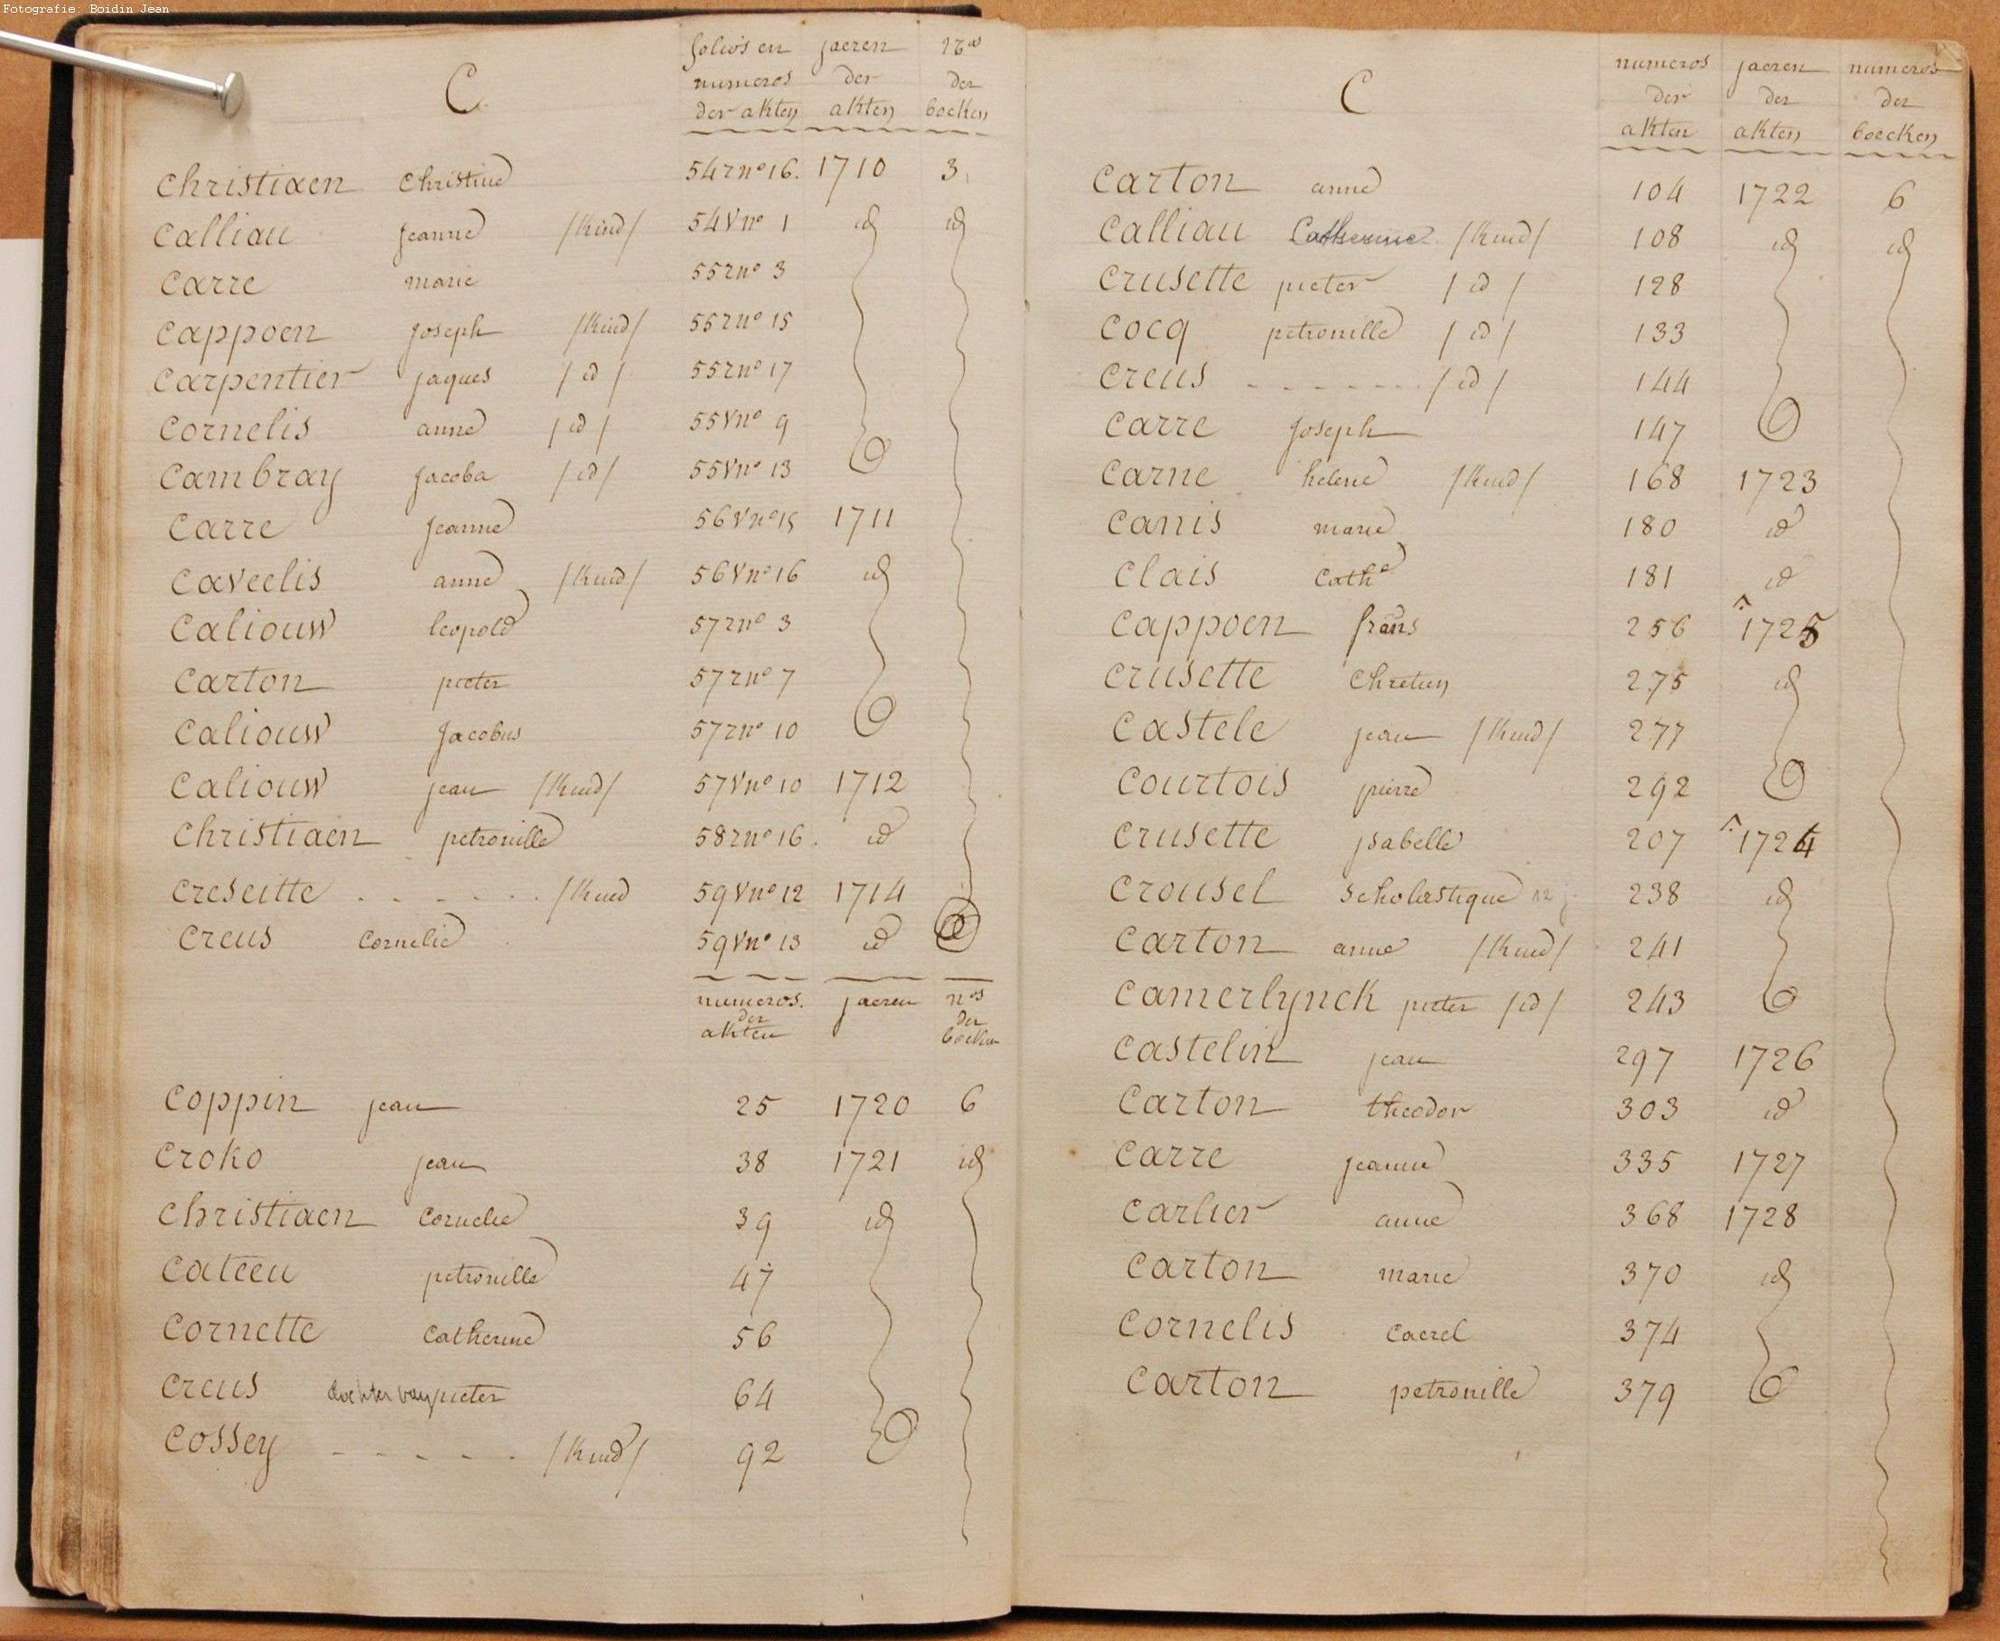 Fotografie: Boidin Jean
C folios en numeros der akten jaeren der akten nos der boecken
Christiaen Christine 54 r no 16. 1710 3
Calliau jeanne /kind/ 54 v no 1 id id
Carre marie 55 r no 3
Cappoen joseph /kind/ 55 r no 15
Carpentier jaques /id/ 55 r no 17
Cornelis anne /id/ 55 v no 9
Cambray jacoba /id/ 55 v no 13
Carre jeanne 56 v no 15 1711
Caveelis anne /kind/ 56 v no 16 id
Caliouw leopold 57 r no 3
Carton pieter 57 r no 7
Caliouw jacobus 57 r no 10
Caliouw jean /kind/ 57 v no 10 1712
Christiaen petronille 58 r no 16. id
Creseitte - - - - - - /kind 59 v no 12 1714
Creus Cornelie 59 v no 13 id id
numeros. der akten jaeren nos der boecken
Coppin jean 25 1720 6
Croko jean 38 1721 id
Christiaen Cornelie 39 id
Cateeu petronille 47
Cornette Catherine 56
Creus dochter van pieter 64
Cossey - - - - - /kind/ 92
C numeros der akten jaeren der akten numeros der boecken
Carton anne 104 1722 6
Calliau Catherine /kind/ 108 id id
Crusette pieter /id/ 128
Cocq petronille /id/ 133
Creus - - - - - - - /id/ 144
Carre joseph 147
Carne helene /kind/ 168 1723
Canis marie 180 id
Clais Cathe 181 id
Cappoen frans 256 1725
Crusette Chretien 275 id
Castele jean /kind/ 277
Courtois pierre 292
Crusette ysabelle 207 1724
Crousel scholastique 238 id
Carton anne /kind/ 241
Camerlynck pieter /id/ 243
Castelin jean 297 1726
Carton theodor 303 id
Carre jeanne 335 1727
Carlier anne 368 1728
Carton marie 370 id
Cornelis Caerel 374
Carton petronille 379